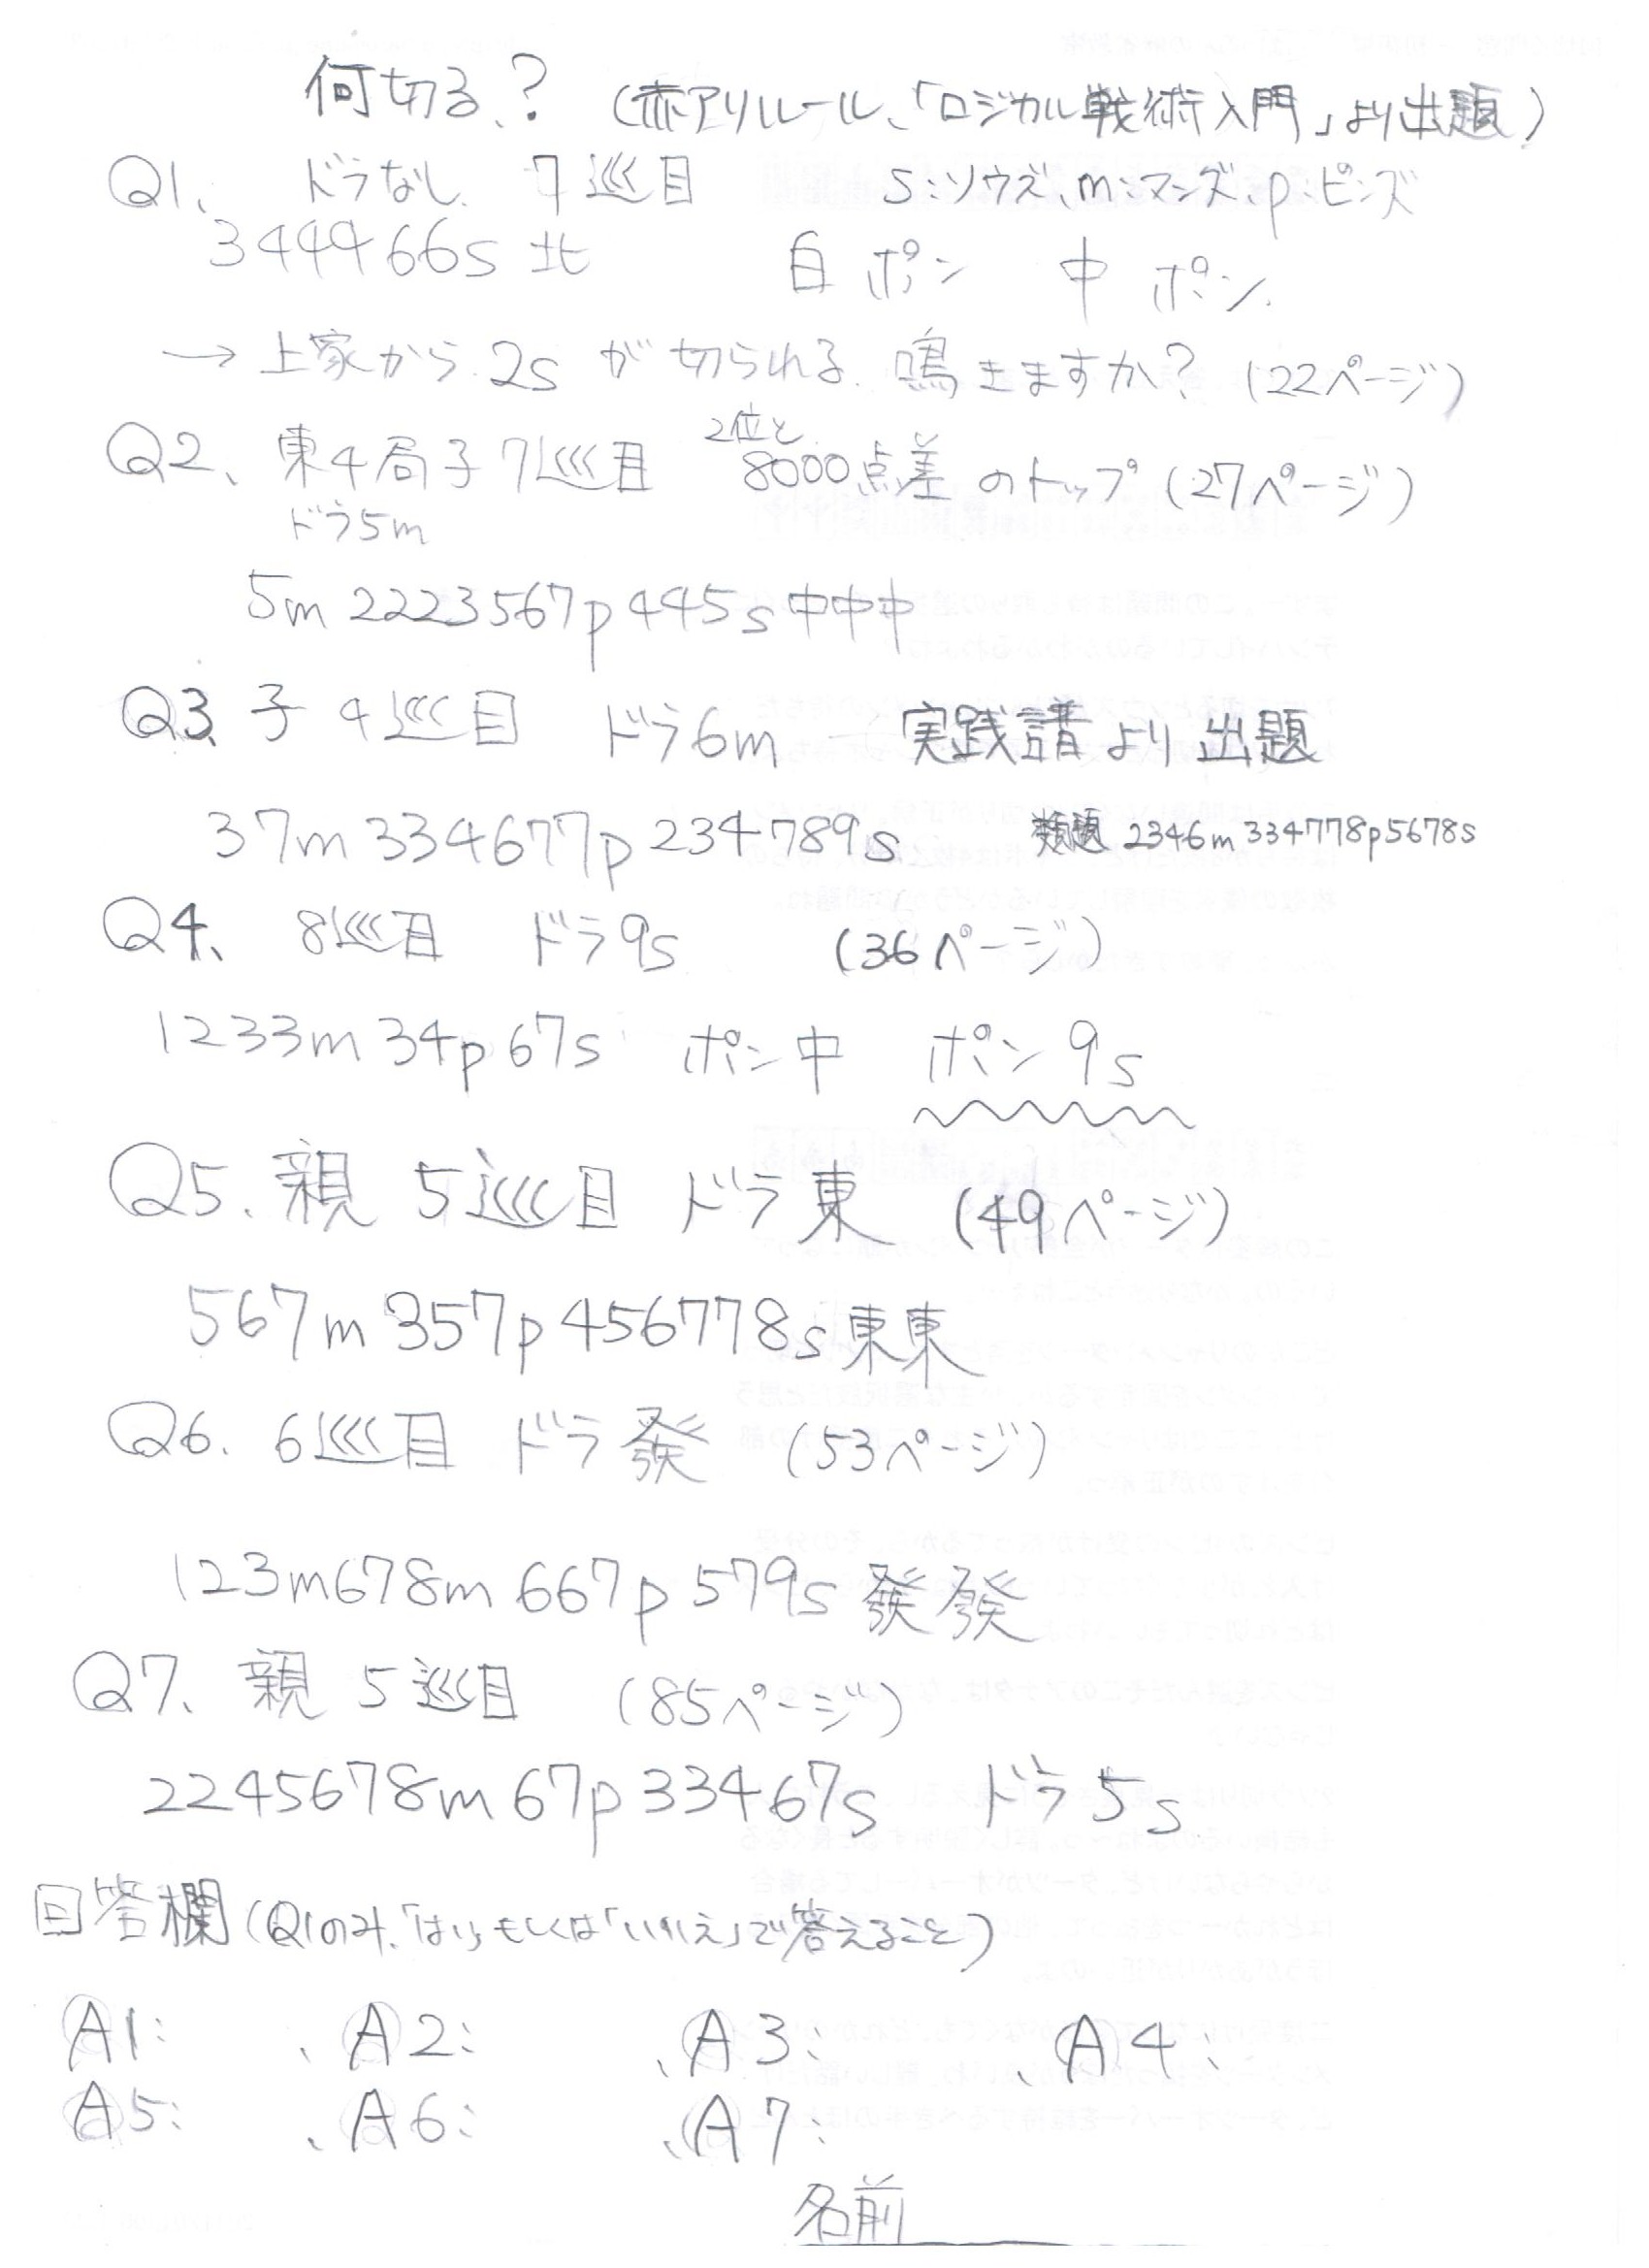 何切る?(赤アリルール、「ロジカル戦術入門」より出題)
Q1、ドラなし 7巡目 s:ソウズ、m:マンズ p:ピンズ
3444 66s 北 白 ポン 中 ポン
→上家から2sが切られる 鳴きますか?(22ページ)
Q2、東4局子7巡目 2位と8000点差のトップ(27ページ)
ドラ5m
5m 2223567p 445s 中中中
Q3、子 4巡目 ドラ6m 実践譜より出題
37m 334677p 234789s 類題 2346m 334778p 5678s
Q4、8巡目 ドラ9s (36ページ)
1233m 34p 67s ポン中 ポン9s
Q5、親 5巡目 ドラ東 (49ページ)
567m 357p 456778s 東東
Q6、6巡目 ドラ發 (53ページ)
123m 678m 667p 579s 發發
Q7、親 5巡目 (85ページ)
2245678m 67p 33467s ドラ5s
回答欄(Q1のみ、「はい」もしくは「いいえ」で答えること)
A1: 、A2: 、A3: 、A4:
A5: 、A6: 、A7:
名前